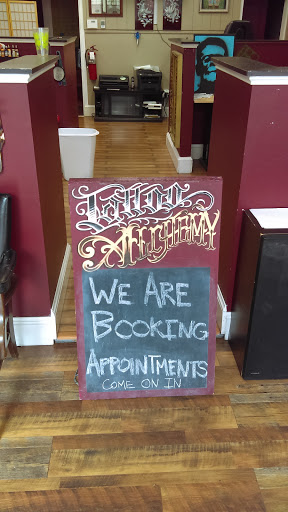 Tattoo
Alchemy
WE ARE
BOOKING
APPOINTMENTS
COME ON IN